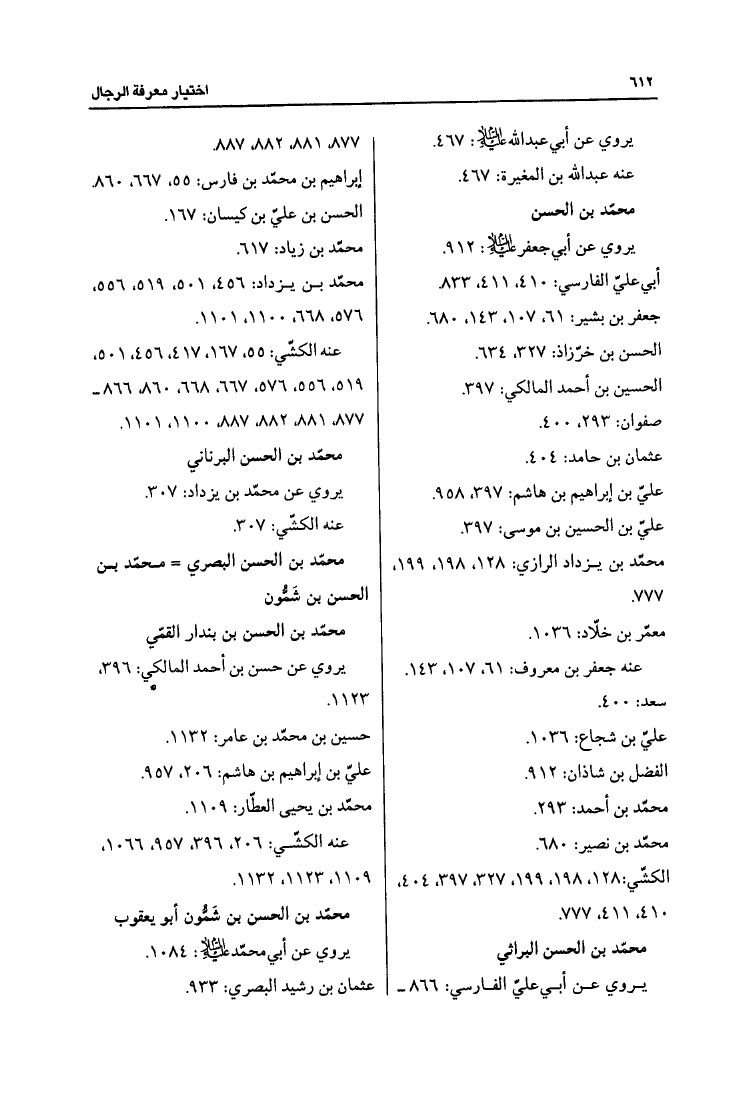 ٦١٢
اختيار معرفة الرجال
يروي عن أبي عبدالله عليه‌السلام: ٤٦٧.
عنه عبدالله بن المغيرة: ٤٦٧.
محمّد بن الحسن
يروي عن أبي جعفر عليه‌السلام: ٩١٢.
أبي عليّ الفارسي: ٤١٠، ٤١١، ٨٣٣.
جعفر بن بشير: ٦١، ١٠٧، ١٤٣، ٦٨٠.
الحسن بن خرّزاذ: ٣٢٧، ٦٣٤.
الحسين بن أحمد المالكي: ٣٩٧.
صفوان: ٢٩٣، ٤٠٠.
عثمان بن حامد: ٤٠٤.
عليّ بن إبراهيم بن هاشم: ٣٩٧، ٩٥٨.
عليّ بن الحسين بن موسى: ٣٩٧.
محمّد بن يـزداد الرازي: ١٢٨، ١٩٨، ١٩٩،
٧٧٧.
معمّر بن خلّاد: ١٠٣٦.
عنه جعفر بن معروف: ٦١، ١٠٧، ١٤٣.
سعد: ٤٠٠.
عليّ بن شجاع: ١٠٣٦.
الفضل بن شاذان: ٩١٢.
محمّد بن أحمد: ٢٩٣.
محمّد بن نصير: ٦٨٠.
الكشّي: ١٢٨، ١٩٨، ١٩٩، ٣٢٧، ٣٩٧، ٤٠٤،
٤١٠، ٤١١، ٧٧٧.
محمّد بن الحسن البراثي
يـروي عـن أبـي عليّ الفـارسي: ٨٦٦ ـ
٨٧٧، ٨٨١، ٨٨٢، ٨٨٧.
إبراهيم بن محمّد بن فارس: ٥٥، ٦٦٧، ٨٦٠.
الحسن بن عليّ بن كيسان: ١٦٧.
محمّد بن زياد: ٦١٧.
محمّد بـن يـزداد: ٤٥٦، ٥٠١، ٥١٩، ٥٥٦،
٥٧٦، ٦٦٨، ١١٠٠، ١١٠١.
عنه الكشّي: ٥٥، ١٦٧، ٤١٧، ٤٥٦، ٥٠١،
٥١٩، ٥٥٦، ٥٧٦، ٦٦٧، ٦٦٨، ٨٦٠، ٨٦٦ ـ
٨٧٧، ٨٨١، ٨٨٢، ٨٨٧، ١١٠٠، ١١٠١.
محمّد بن الحسن البرناني
يروي عن محمّد بن يزداد: ٣٠٧.
عنه الكشّي: ٣٠٧.
محمّد بن الحسن البصري = مـحمّد بـن
الحسن بن شَمُّون
محمّد بن الحسن بن بندار القمّي
يروي عن حسن بن أحمد المالكي: ٣٩٦،
١١٢٣.
حسين بن محمّد بن عامر: ١١٣٢.
عليّ بن إبراهيم بن هاشم: ٢٠٦، ٩٥٧.
محمّد بن يحيى العطّار: ١١٠٩.
عنه الكشّـي: ٢٠٦، ٣٩٦، ٩٥٧، ١٠٦٦،
١١٠٩، ١١٢٣، ١١٣٢.
محمّد بن الحسن بن شَمُّون أبو يعقوب
يروي عن أبي محمّد عليه‌السلام: ١٠٨٤.
عثمان بن رشيد البصري: ٩٣٣.